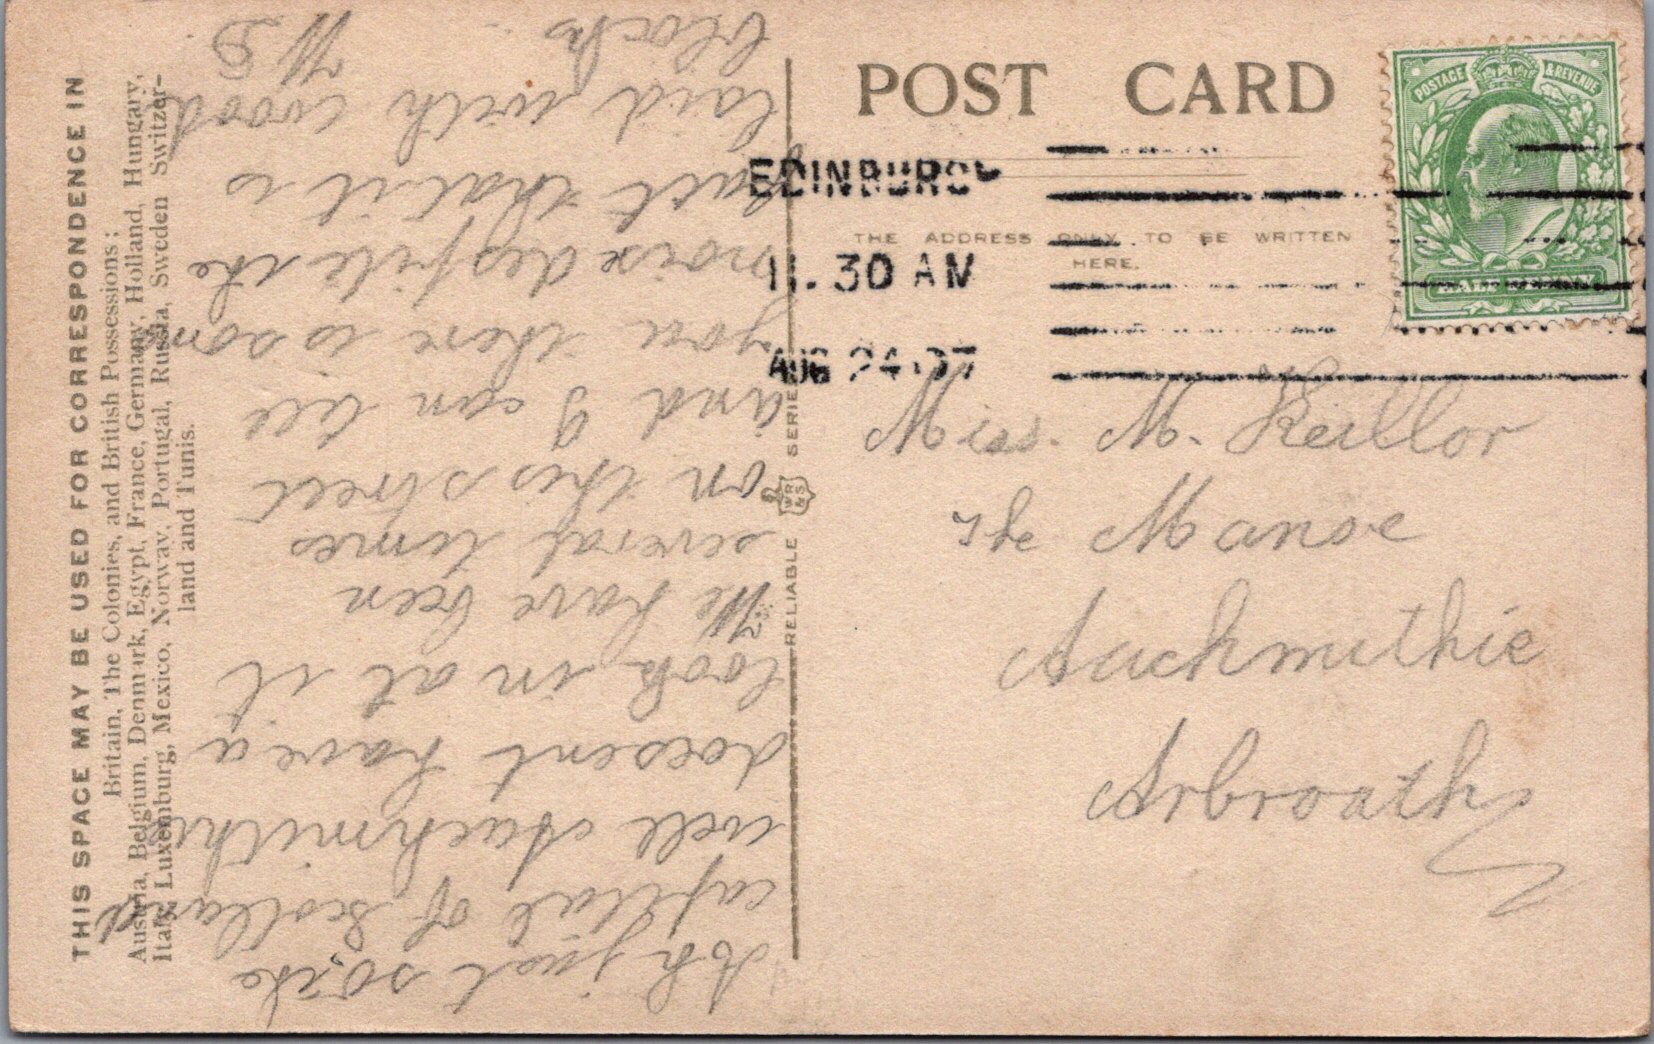 POST CARD
POSTAGE & REVENUE
HALF PENNY
EDINBURGH
11.30 AM
AUG 24 07
THE ADDRESS ONLY TO BE WRITTEN
HERE.
Miss. M. Keillor
The Manse
Auchmithie
Arbroath
THIS SPACE MAY BE USED FOR CORRESPONDENCE IN
Britain, The Colonies, and British Possessions;
Austria, Belgium, Denmark, Egypt, France, Germany, Holland, Hungary,
Italy, Luxemburg, Mexico, Norway, Portugal, Russia, Sweden Switzer-
land and Tunis.
RELIABLE WR&S SERIES
Ah just so, the
capital of Scotland
well Auchmithie
doesent have a
look in at it
We have been
several times
on this street
and I can tell
you there is some
noise despite the
fact that it is
laid with wood
blocks W D